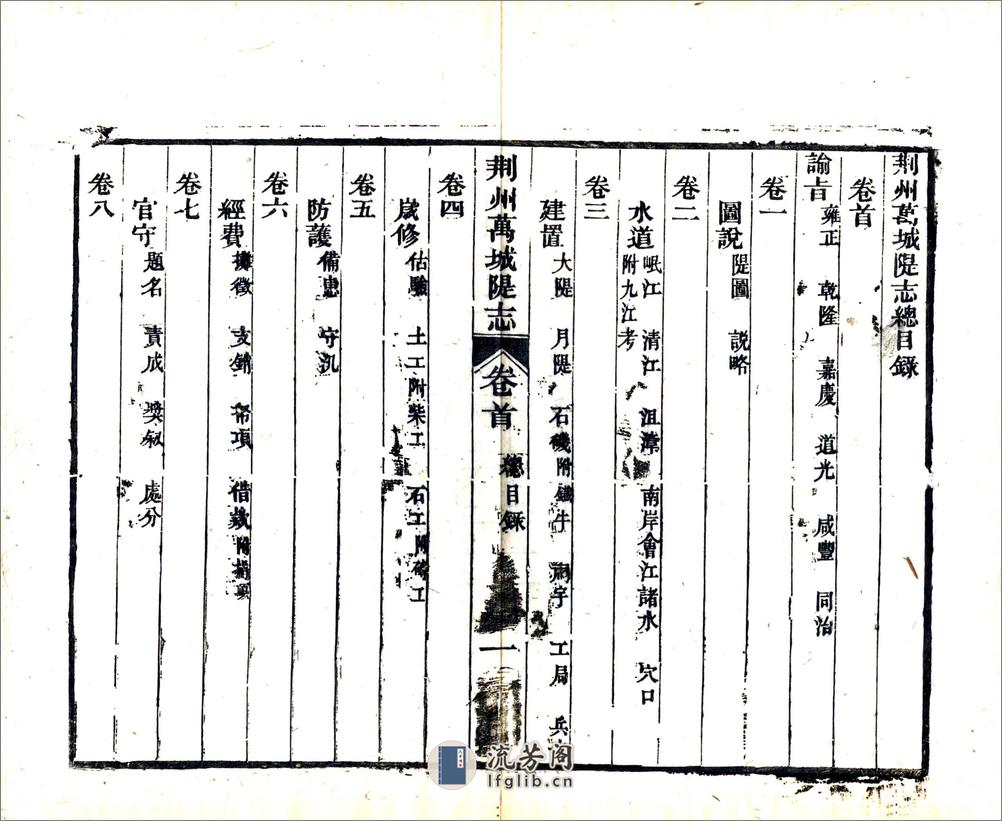 荆州萬城隄志總目錄
卷首
諭旨 雍正 乾隆 嘉慶 道光 咸豐 同治
卷一
圖說 隄圖 說略
卷二
水道 岷江 清江 沮漳 南岸會江諸水 穴口 附九江考
卷三
建置 大隄 月隄 石磯附鐵牛 工局 兵
荆州萬城隄志 卷首 總目錄 一
卷四
歲修 估驗 土工附柴工 石工附磚工
卷五
防護 備患 守汛
卷六
經費 攤徵 支銷 帑項 借款
卷七
官守 題名 責成 獎叙 處分
卷八
流芳阁
lfglib.cn